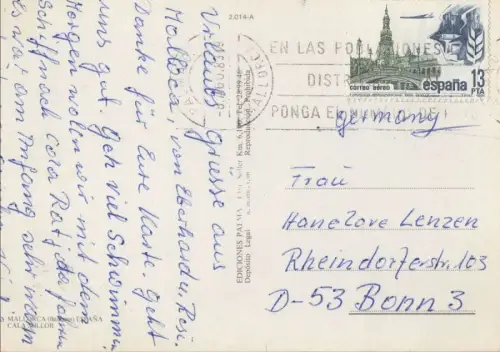 2.014-A
Urlaubs-Grüsse aus
Mallorca, von Eberhard u. Resi.
Danke für Eure Karte. Geht
uns gut. Geh viel Schwimmen
Morgen wollen wir mit dem
Schiff nach Cala Ratjada fahren
es war am Anfang sehr warm
MALLORCA ESPAÑA
CALA MILLOR
EDICIONES PALMA
Depósito Legal
Reproducción Prohibida
EN LAS POBLACIONES
DISTR
PONGA EL
correo aéreo
españa
13
PTA
Germany
Frau
Hanelore Lenzen
Rheindorferstr. 103
D-53 Bonn 3